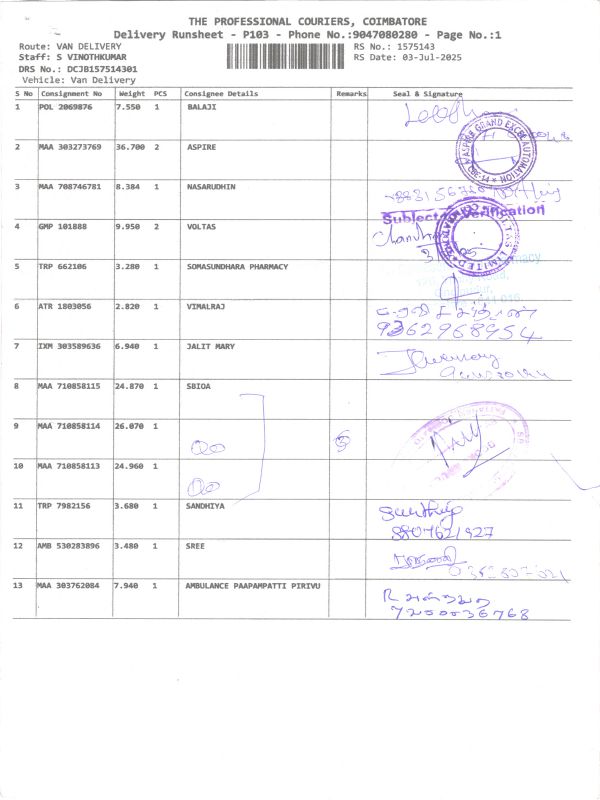 THE PROFESSIONAL COURIERS, COIMBATORE
Delivery Runsheet - P103 - Phone No.:9047080280 - Page No.:1
Route: VAN DELIVERY RS No.: 1575143
Staff: S VINOTHKUMAR RS Date: 03-Jul-2025
DRS No.: DCJB157514301
Vehicle: Van Delivery
S No Consignment No Weight PCS Consignee Details Remarks Seal & Signature
1 POL 2069876 7.550 1 BALAJI
2 MAA 303273769 36.700 2 ASPIRE
ASPIRE GRAND EXCEL AUTOMATION
3 MAA 708746781 8.384 1 NASARUDHIN
Subject Verification
4 GMP 101888 9.950 2 VOLTAS
LIMITED
5 TRP 662106 3.280 1 SOMASUNDHARA PHARMACY
6 ATR 1803056 2.820 1 VIMALRAJ
9362968954
7 IXM 303589636 6.940 1 JALIT MARY
8 MAA 710858115 24.870 1 SBIOA
9 MAA 710858114 26.070 1
10 MAA 710858113 24.960 1
11 TRP 7982156 3.680 1 SANDHIYA
8807621927
12 AMB 530283896 3.480 1 SREE
13 MAA 303762084 7.940 1 AMBULANCE PAAPAMPATTI PIRIVU
7200036768